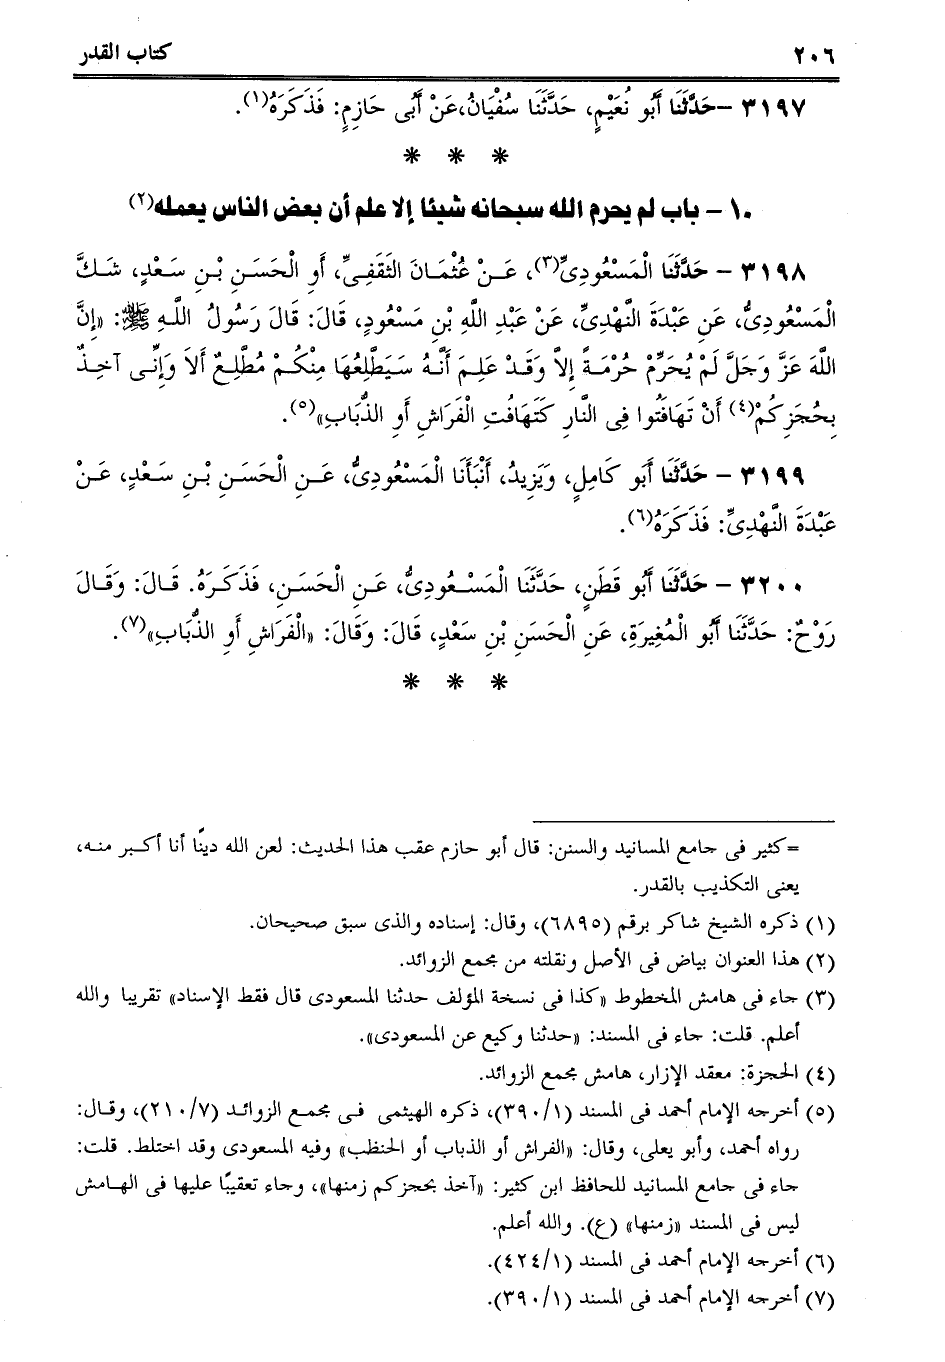 ٢٠٦ كتاب القدر
٣١٩٧ – حَدَّثَنَا أَبُو نُعَيْمٍ، حَدَّثَنَا سُفْيَانُ،عَنْ أَبِى حَازِمٍ: فَذَكَرَهُ(١).
* * *
١٠ – باب لم يحرم الله سبحانه شيئا إلا علم أن بعض الناس يعمله(٢)
٣١٩٨ – حَدَّثَنَا الْمَسْعُودِىُّ(٣)، عَنْ عُثْمَانَ الثَّقَفِىِّ، أَوِ الْحَسَنِ بْنِ سَعْدٍ، شَكَّ
الْمَسْعُودِىُّ، عَنِ عَبْدَةَ النَّهْدِىِّ، عَنْ عَبْدِ اللَّهِ بْنِ مَسْعُودٍ، قَالَ: قَالَ رَسُولُ اللَّهِ ﷺ: «إِنَّ
اللَّهَ عَزَّ وَجَلَّ لَمْ يُحَرِّمْ حُرْمَةً إِلاَّ وَقَدْ عَلِمَ أَنَّهُ سَيَطَّلِعُهَا مِنْكُمْ مُطَّلِعٌ أَلاَ وَإِنِّى آخِذٌ
بِحُجَزِكُمْ(٤) أَنْ تَهَافَتُوا فِى النَّارِ كَتَهَافُتِ الْفَرَاشِ أَوِ الذُّبَابِ»(٥).
٣١٩٩ – حَدَّثَنَا أَبُو كَامِلٍ، وَيَزِيدُ، أَنْبَأَنَا الْمَسْعُودِىُّ، عَنِ الْحَسَنِ بْنِ سَعْدٍ، عَنْ
عَبْدَةَ النَّهْدِىِّ: فَذَكَرَهُ(٦).
٣٢٠٠ – حَدَّثَنَا أَبُو قَطَنٍ، حَدَّثَنَا الْمَسْعُودِىُّ، عَنِ الْحَسَنِ، فَذَكَرَهُ. قَالَ: وَقَالَ
رَوْحٌ: حَدَّثَنَا أَبُو الْمُغِيرَةِ، عَنِ الْحَسَنِ بْنِ سَعْدٍ، قَالَ: وَقَالَ: «الْفَرَاشِ أَوِ الذُّبَابِ»(٧).
* * *
=كثير فى جامع المسانيد والسنن: قال أبو حازم عقب هذا الحديث: لعن الله دينًا أنا أكبر منه،
يعنى التكذيب بالقدر.
(١) ذكره الشيخ شاكر برقم (٦٨٩٥)، وقال: إسناده والذى سبق صحيحان.
(٢) هذا العنوان بياض فى الأصل ونقلته من مجمع الزوائد.
(٣) جاء فى هامش المخطوط «كذا فى نسخة المؤلف حدثنا المسعودى قال فقط الإسناد» تقريبا والله
أعلم. قلت: جاء فى المسند: «حدثنا وكيع عن المسعودى».
(٤) الحجزة: معقد الإزار، هامش مجمع الزوائد.
(٥) أخرجه الإمام أحمد فى المسند (٣٩٠/١)، ذكره الهيثمى فى مجمع الزوائد (٢١٠/٧)، وقال:
رواه أحمد، وأبو يعلى، وقال: «الفراش أو الذباب أو الحنظب» وفيه المسعودى وقد اختلط. قلت:
جاء فى جامع المسانيد للحافظ ابن كثير: «آخذ بحجزكم زمنها»، وجاء تعقيبًا عليها فى الهامش
ليس فى المسند «زمنها» (ع). والله أعلم.
(٦) أخرجه الإمام أحمد فى المسند (٤٢٤/١).
(٧) أخرجه الإمام أحمد فى المسند (٣٩٠/١).